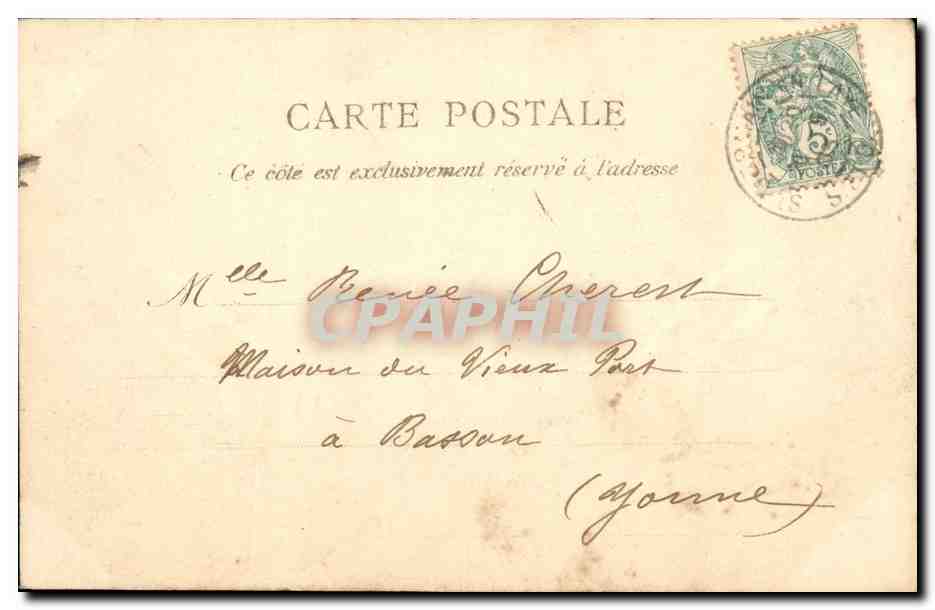 CARTE POSTALE
Ce côté est exclusivement réservé à l'adresse
5
Mlle Renée Cherest
CPAPHIL
Maison du Vieux Pont
à Basson
(Yonne)